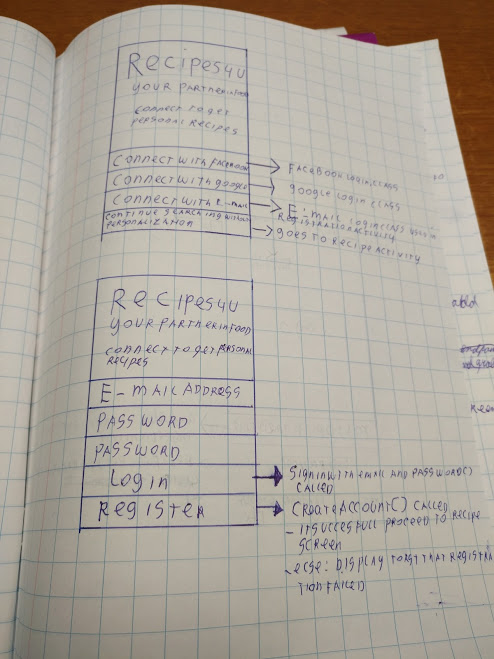 Recipes4U
YOUR PARTNER IN FOOD
CONNECT TO GET
PERSONAL RECIPES
CONNECT WITH FACEBOOK
FACEBOOK LOGIN CLASS
CONNECT WITH google
google LOGIN CLASS
CONNECT WITH E-MAIL
E-MAIL LOGIN CLASS
REGISTRATION ACTIVITY
CONTINUE SEARCHING WITHOUT
PERSONALIZATION
goes TO RECIPE ACTIVITY
RECIPES4U
YOUR PARTNER IN FOOD
CONNECT TO GET PERSONAL
RECIPES
E-MAIL ADDRESS
PASSWORD
PASSWORD
LOGIN
SIGNINWITHEMAIL AND PASSWORD()
CALLED
REGISTER
CREATEACCOUNT() CALLED
- IF SUCCESFULL PROCEED TO RECIPE
SCREEN
- ELSE: DISPLAY TOAST THAT REGISTRA
TION FAILED
add